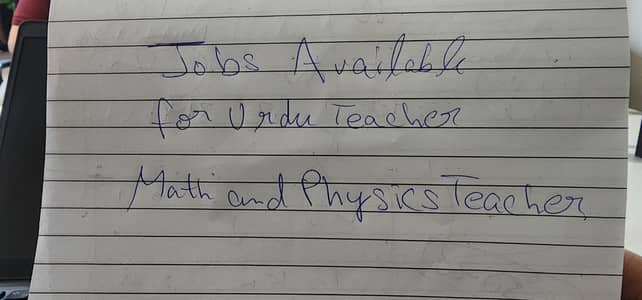 Jobs Available
for Urdu Teacher
Math and Physics Teacher